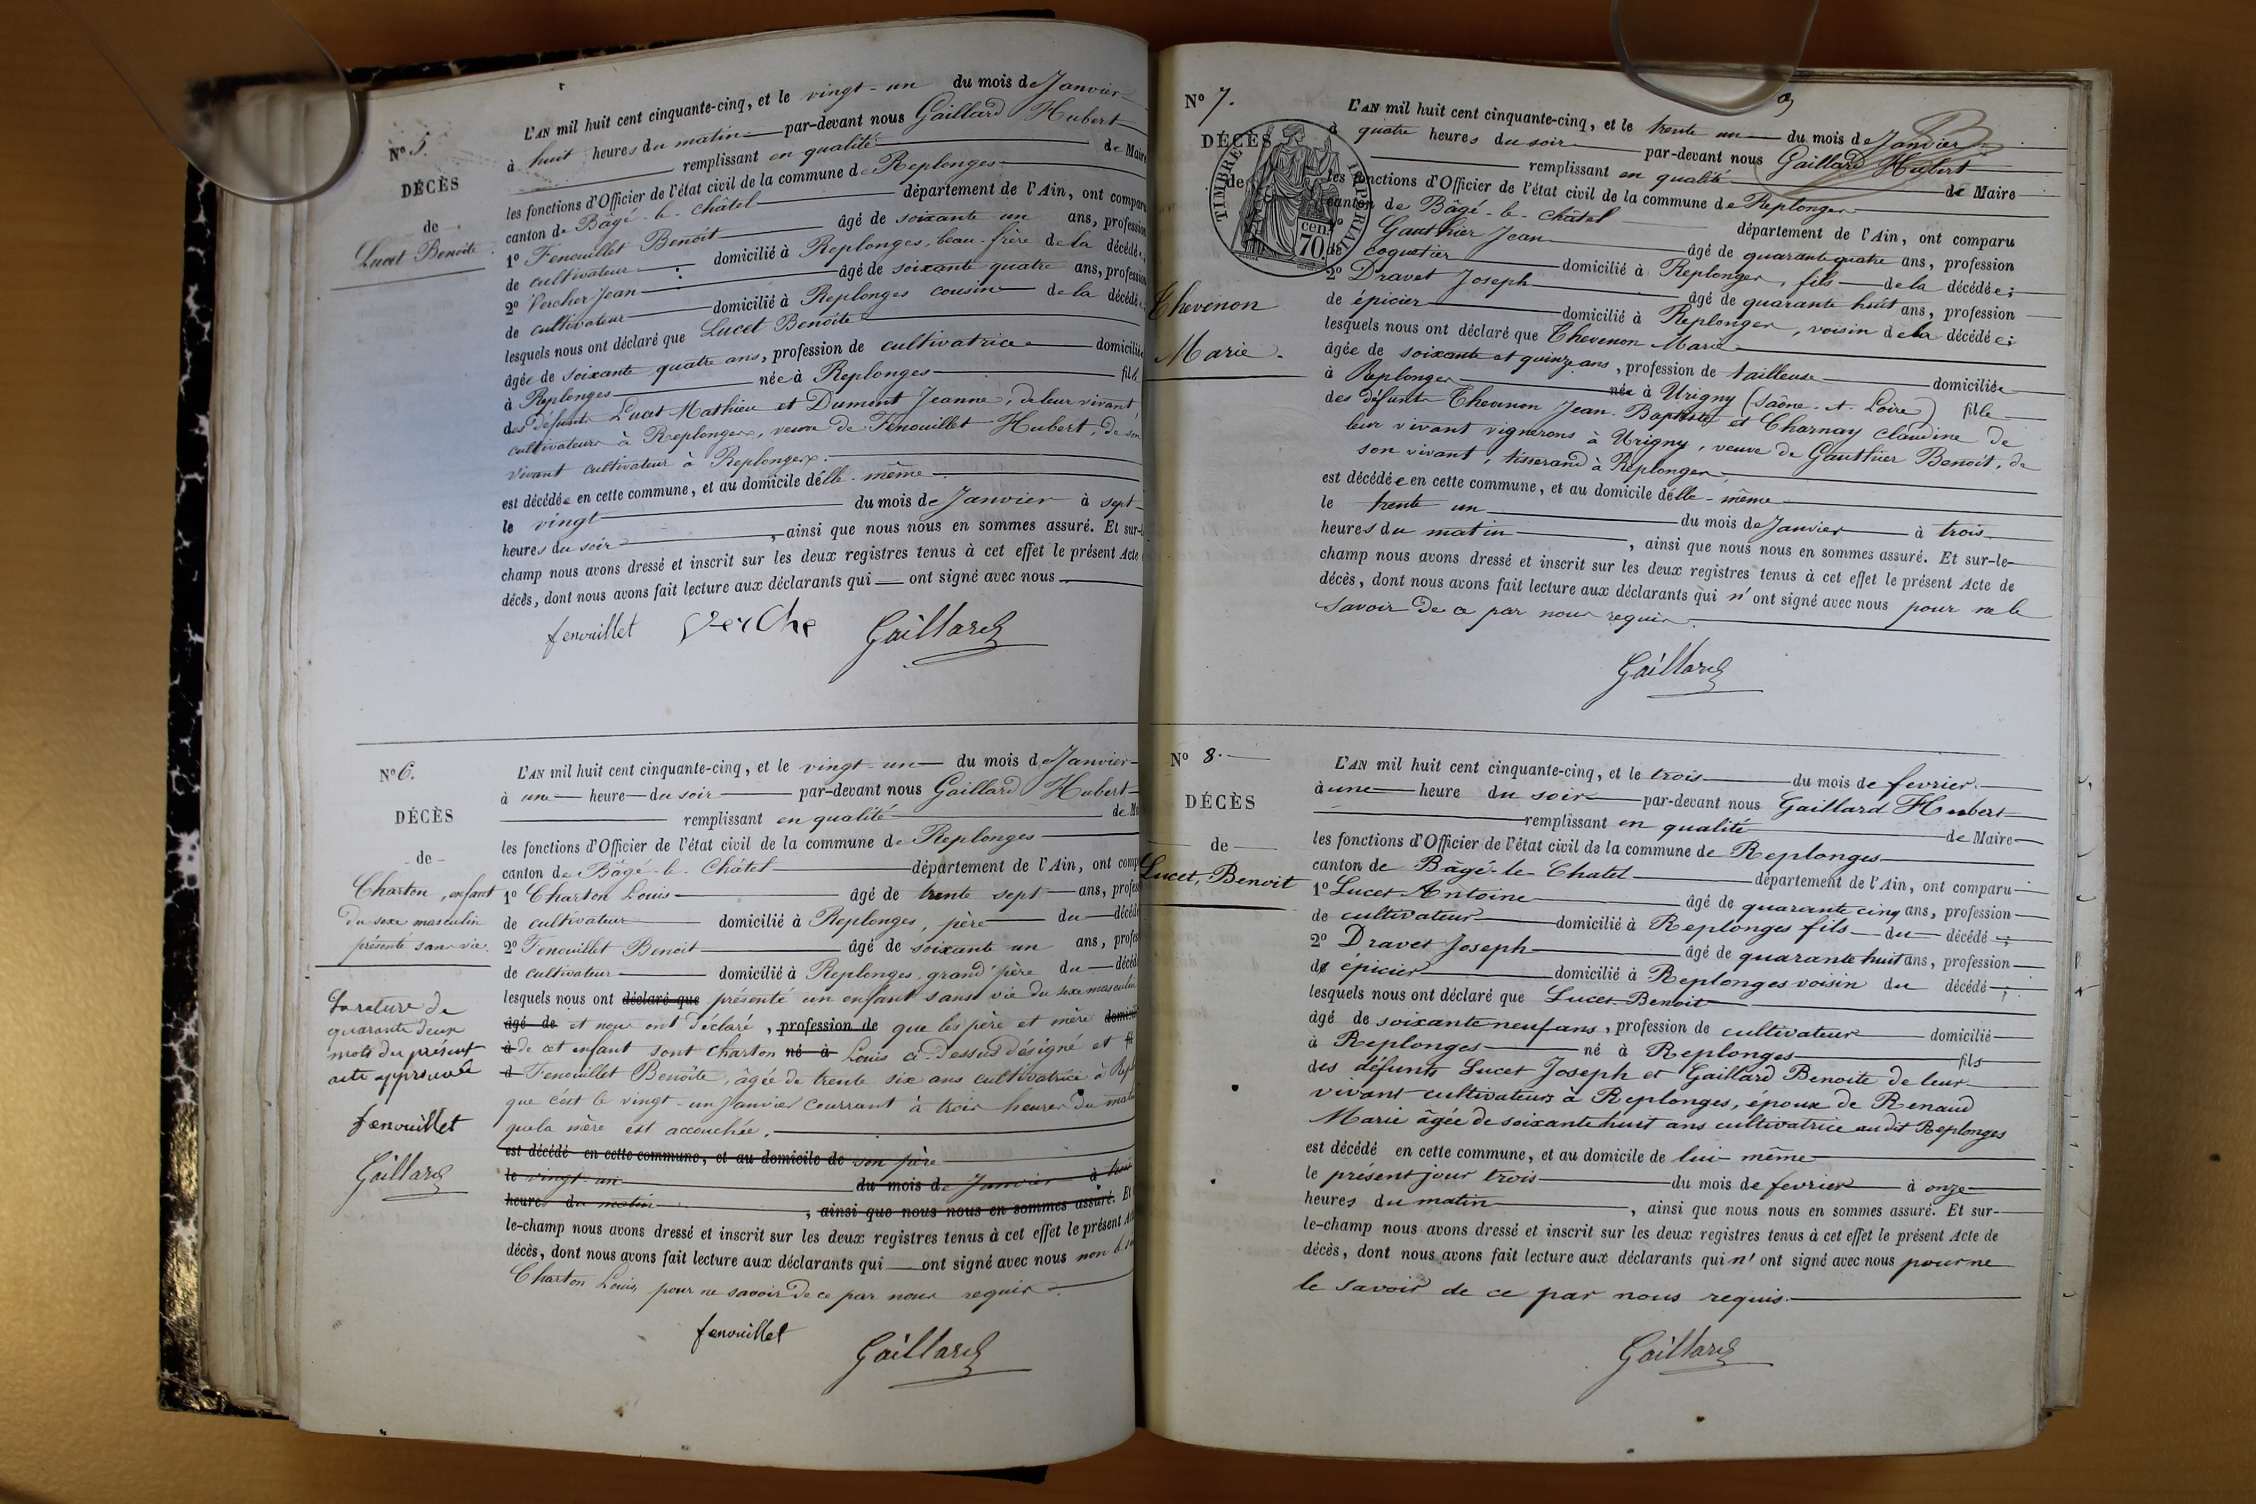 N° 5.
DÉCÈS
de
Lucet Benoite
L'AN mil huit cent cinquante-cinq, et le vingt-un du mois de Janvier
à huit heures du matin par-devant nous Gaillard Hubert
remplissant en qualité de Maire
les fonctions d'Officier de l'état civil de la commune de Replonges
canton de Bâgé-le-châtel département de l'Ain, ont comparu
1° Fenouillet Benoit âgé de soixante un ans, profession
de cultivateur domicilié à Replonges, beau-frère de la décédée
2° Vercher Jean âgé de soixante quatre ans, profession
de cultivateur domicilié à Replonges cousin de la décédée
lesquels nous ont déclaré que Lucet Benoite
âgée de soixante quatre ans, profession de cultivatrice domiciliée
à Replonges née à Replonges fille
des défunts Lucet Mathieu et Dumont Jeanne, de leur vivant
cultivateurs à Replonges, veuve de Fenouillet Hubert, de son
vivant cultivateur à Replonges.
est décédée en cette commune, et au domicile d'elle-même
le vingt du mois de Janvier à sept
heures du soir, ainsi que nous nous en sommes assuré. Et sur-le-
champ nous avons dressé et inscrit sur les deux registres tenus à cet effet le présent Acte
décès, dont nous avons fait lecture aux déclarants qui ont signé avec nous
fenouillet Verche Gaillard
N° 6.
DÉCÈS
de
Charton, enfant
du sexe masculin
présenté sans vie.
La rature de
quarante deux
mots du présent
acte approuvée
fenouillet
Gaillard
L'AN mil huit cent cinquante-cinq, et le vingt-un du mois de Janvier
à une heure du soir par-devant nous Gaillard Hubert
remplissant en qualité de Ma
les fonctions d'Officier de l'état civil de la commune de Replonges
canton de Bâgé-le-Châtel département de l'Ain, ont comp
1° Charton Louis âgé de trente sept ans, profes
de cultivateur domicilié à Replonges, père du décédé
2° Fenouillet Benoit âgé de soixante un ans, profes
de cultivateur domicilié à Replonges, grand'père du décéd
lesquels nous ont déclaré que présenté un enfant sans vie du sexe masculin
âgé de et nous ont déclaré, profession de que les père et mère domicil
à de cet enfant sont Charton né à Louis ci-dessus désigné et fi
d Fenouillet Benoîte, âgée de trente six ans cultivatrice à Repl
que c'est le vingt-un Janvier courrant à trois heures du matin
que la mère est accouchée.
est décédé en cette commune, et au domicile de son père
le vingt un du mois de Janvier à trois
heures du matin, ainsi que nous nous en sommes assuré. Et
le-champ nous avons dressé et inscrit sur les deux registres tenus à cet effet le présent Acte
décès, dont nous avons fait lecture aux déclarants qui ont signé avec nous non
Charton Louis, pour ne savoir de ce par nous requis.
fenouillet Gaillard
N° 7.
DÉCÈS
de
TIMBRE IMPERIAL
70 cen.
Chevenon
Marie.
9
L'AN mil huit cent cinquante-cinq, et le trente un du mois de Janvier
à quatre heures du soir par-devant nous Gaillard Hubert
remplissant en qualité de Maire
les fonctions d'Officier de l'état civil de la commune de Replonges
canton de Bâgé-le-châtel département de l'Ain, ont comparu
1° Gauthier Jean âgé de quarante quatre ans, profession
de coquetier domicilié à Replonges, fils de la décédée;
2° Dravet Joseph âgé de quarante huit ans, profession
de épicier domicilié à Replonges, voisin de la décédée;
lesquels nous ont déclaré que Chevenon Marie
âgée de soixante et quinze ans, profession de tailleuse domiciliée
à Replonges née à Urigny (Saône-et-Loire) fille
des défunts Chevenon Jean-Baptiste et Charnay Claudine de
leur vivant vignerons à Urigny, veuve de Gauthier Benoit, de
son vivant, tisserand à Replonges
est décédée en cette commune, et au domicile d'elle-même
le trente un du mois de Janvier à trois
heures du matin, ainsi que nous nous en sommes assuré. Et sur-le-
champ nous avons dressé et inscrit sur les deux registres tenus à cet effet le présent Acte de
décès, dont nous avons fait lecture aux déclarants qui n'ont signé avec nous pour ne le
savoir de ce par nous requis.
Gaillard
N° 8.
DÉCÈS
de
Lucet, Benoit
L'AN mil huit cent cinquante-cinq, et le trois du mois de fevrier
à une heure du soir par-devant nous Gaillard Hubert
remplissant en qualité de Maire
les fonctions d'Officier de l'état civil de la commune de Replonges
canton de Bâgé-le-Chatel département de l'Ain, ont comparu
1° Lucet Antoine âgé de quarante cinq ans, profession
de cultivateur domicilié à Replonges fils du décédé;
2° Dravet Joseph âgé de quarante huit ans, profession
de épicier domicilié à Replonges voisin du décédé;
lesquels nous ont déclaré que Lucet Benoit
âgé de soixante neuf ans, profession de cultivateur domicilié
à Replonges né à Replonges fils
des défunts Lucet Joseph et Gaillard Benoite de leur
vivant cultivateurs à Replonges, époux de Renaud
Marie âgée de soixante huit ans cultivatrice au dit Replonges
est décédé en cette commune, et au domicile de lui-même
le présent jour trois du mois de fevrier à onze
heures du matin, ainsi que nous nous en sommes assuré. Et sur-
le-champ nous avons dressé et inscrit sur les deux registres tenus à cet effet le présent Acte de
décès, dont nous avons fait lecture aux déclarants qui n'ont signé avec nous pour ne
le savoir de ce par nous requis.
Gaillard